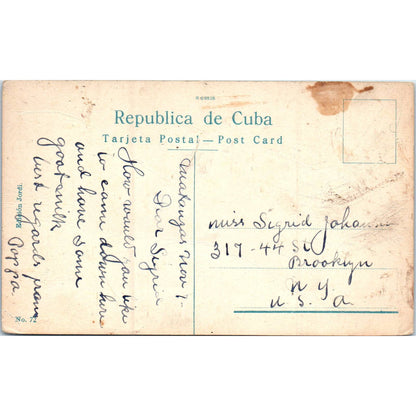 Republica de Cuba
Tarjeta Postal — Post Card
Matanzas Nov 7-
Dear Sigrid
How would you like
to come down here
and have some
goatsmilk
best regards from
Pappa
Miss Sigrid Johan
317-44 St
Brooklyn
N. Y.
U. S. A.
Edición Jordi.
No. 72